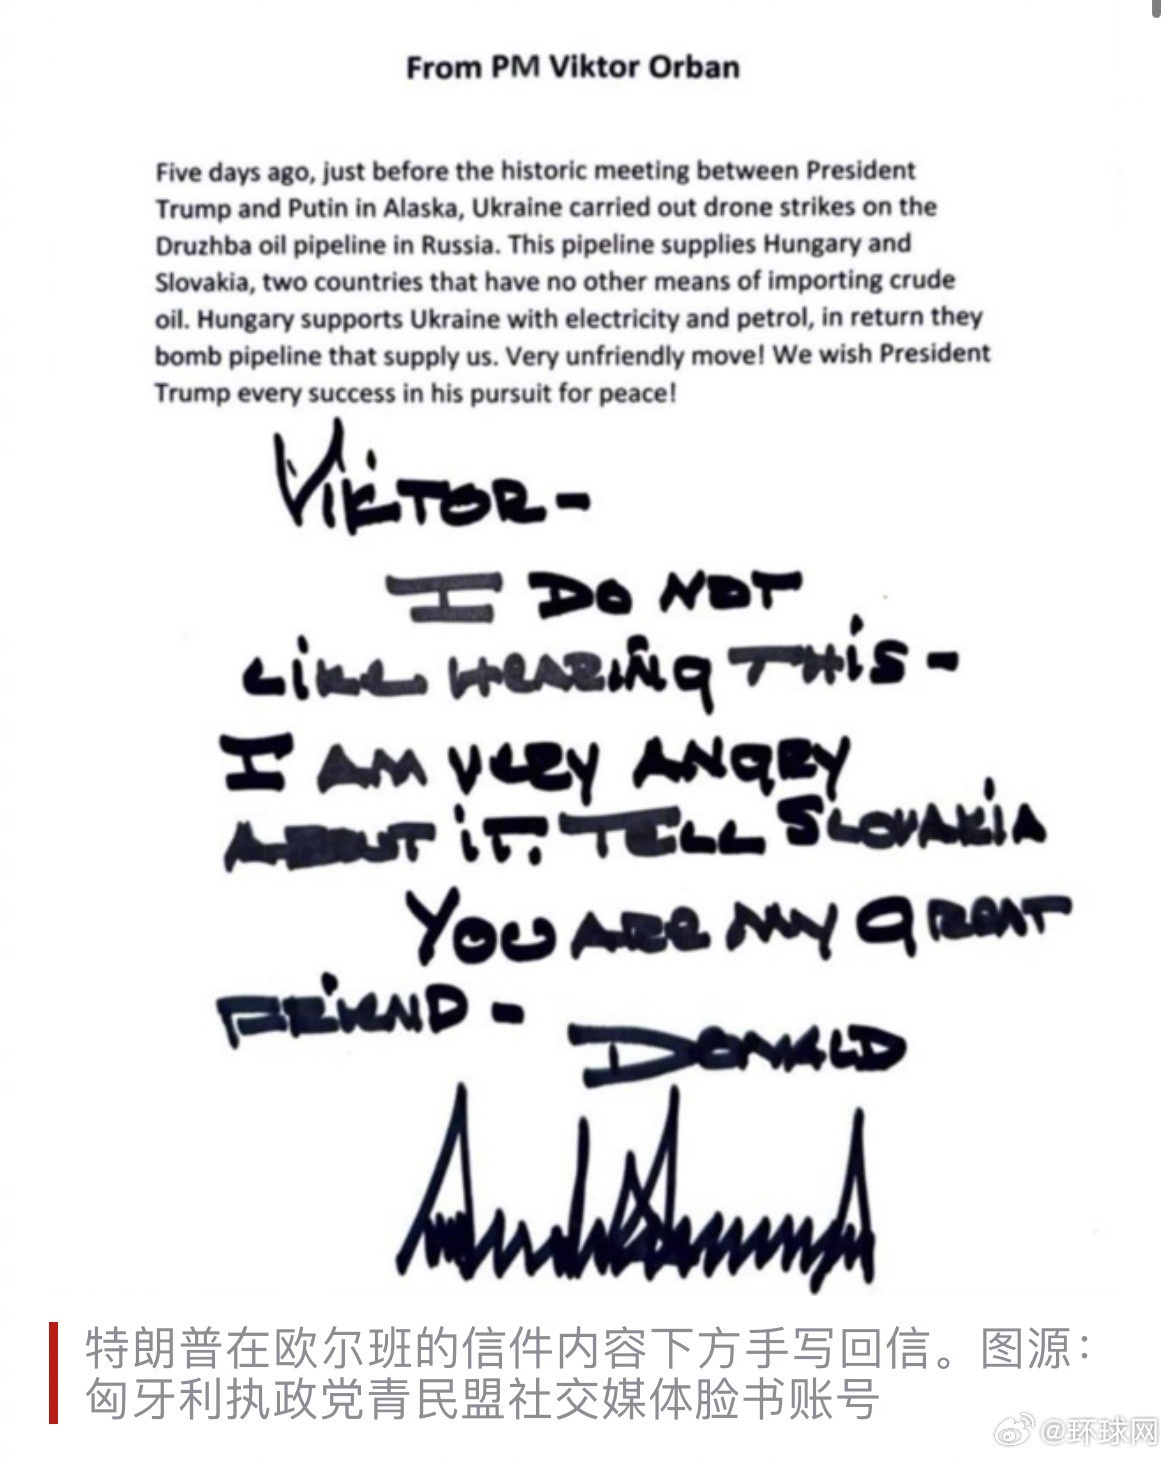 From PM Viktor Orban
Five days ago, just before the historic meeting between President
Trump and Putin in Alaska, Ukraine carried out drone strikes on the
Druzhba oil pipeline in Russia. This pipeline supplies Hungary and
Slovakia, two countries that have no other means of importing crude
oil. Hungary supports Ukraine with electricity and petrol, in return they
bomb pipeline that supply us. Very unfriendly move! We wish President
Trump every success in his pursuit for peace!
VIKTOR-
I DO NOT
LIKE HEARING THIS-
I AM VERY ANGRY
ABOUT IT. TELL SLOVAKIA
YOU ARE MY GREAT
FRIEND-
DONALD
特朗普在欧尔班的信件内容下方手写回信。图源：
匈牙利执政党青民盟社交媒体脸书账号
@环球网